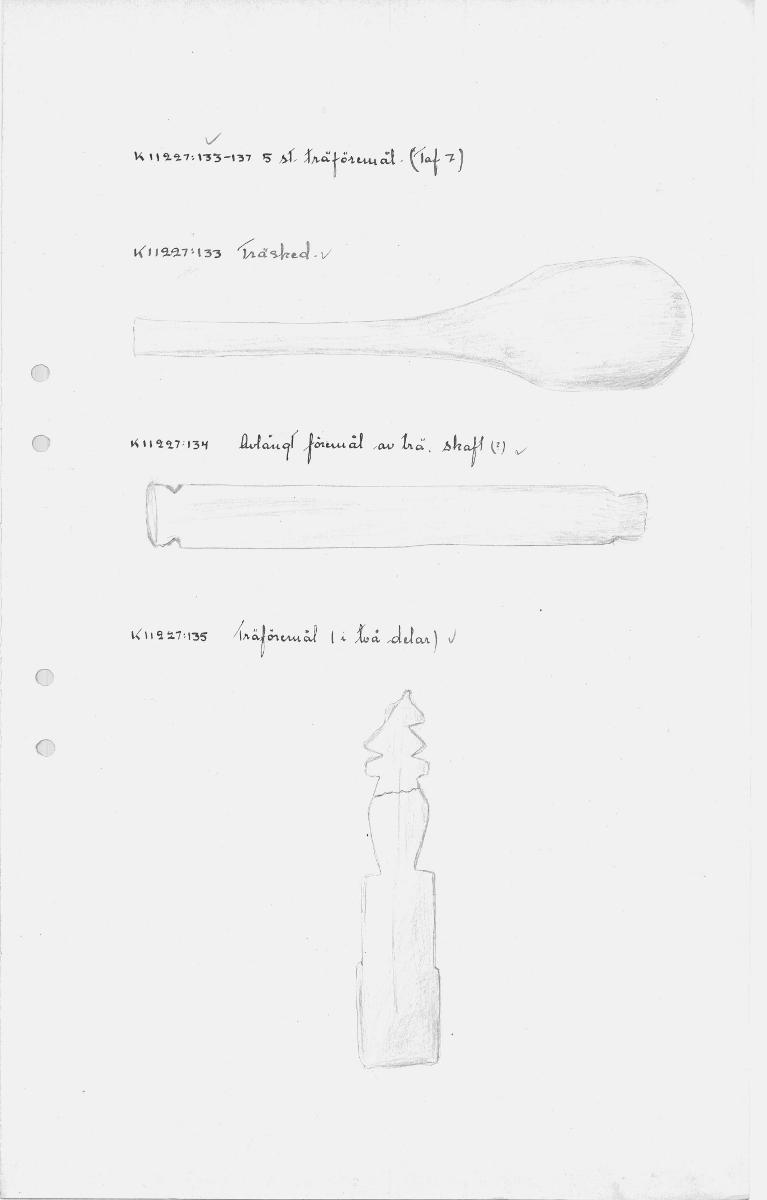 K 11227:133-137 5 st. träföremål. (Taf 7)
K 11227:133 Träsked.
K 11227:134 Avlångt föremål av trä. skaft (?)
K 11227:135 Träföremål (i två delar)